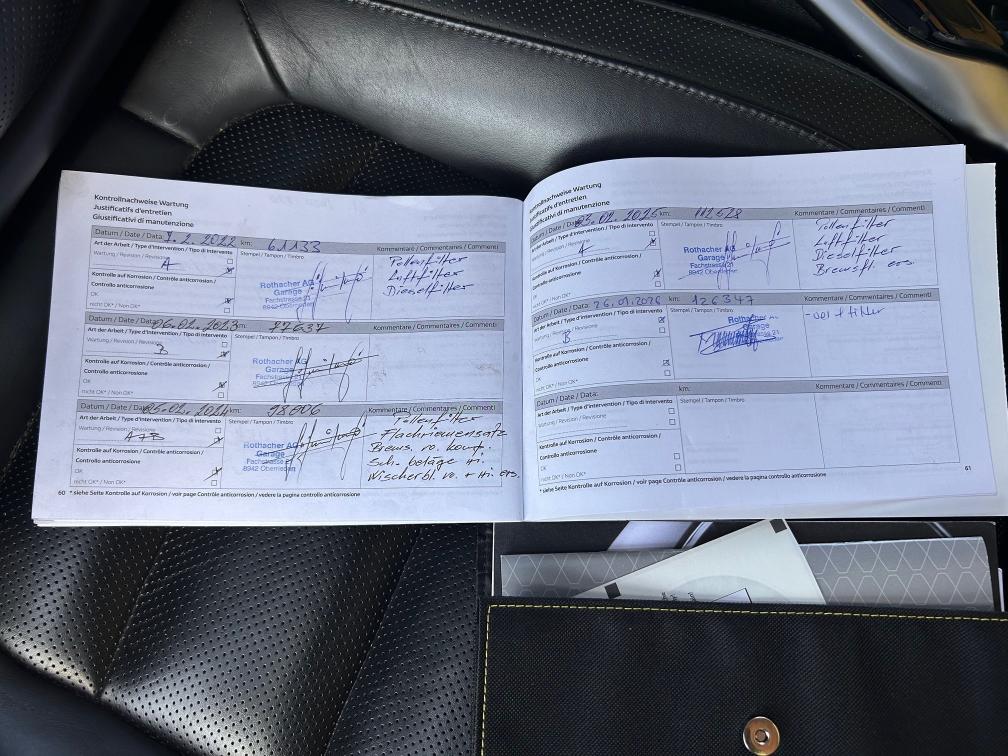 Kontrollnachweise Wartung
Justificatifs d'entretien
Giustificativi di manutenzione
Datum / Date / Data: 7.2.2022 km: 61133 Kommentare / Commentaires / Commenti
Art der Arbeit / Type d'intervention / Tipo di intervento Stempel / Tampon / Timbro
Wartung / Revision / Revisione
A
Pollenfilter
Luftfilter
Dieselfilter
Kontrolle auf Korrosion / Contrôle anticorrosion /
Controllo anticorrosione
OK
nicht OK* / Non OK*
Rothacher AG
Garage
Fachstrasse 21
8942 Oberrieden
Datum / Date / Data: 06.02.2023 km: 77637 Kommentare / Commentaires / Commenti
Art der Arbeit / Type d'intervention / Tipo di intervento Stempel / Tampon / Timbro
Wartung / Revision / Revisione
B
Kontrolle auf Korrosion / Contrôle anticorrosion /
Controllo anticorrosione
OK
nicht OK* / Non OK*
Rothacher AG
Garage
Datum / Date / Data: 05.02.2024 km: 98606 Kommentare / Commentaires / Commenti
Art der Arbeit / Type d'intervention / Tipo di intervento Stempel / Tampon / Timbro
Wartung / Revision / Revisione
A+B
Pollenfilter
Flachriemensatz
Brems. vo. kont.
Sch. beläge Hi.
Wischerbl. vo. + Hi. ers.
Kontrolle auf Korrosion / Contrôle anticorrosion /
Controllo anticorrosione
OK
nicht OK* / Non OK*
Rothacher AG
Garage
Fachstrasse
8942 Oberrieden
60 * siehe Seite Kontrolle auf Korrosion / voir page Contrôle anticorrosion / vedere la pagina controllo anticorrosione
Kontrollnachweise Wartung
Justificatifs d'entretien
Giustificativi di manutenzione
Datum / Date / Data: 02.2025 km: 112528 Kommentare / Commentaires / Commenti
Art der Arbeit / Type d'intervention / Tipo di intervento Stempel / Tampon / Timbro
Wartung / Revision / Revisione
A
Pollenfilter
Luftfilter
Dieselfilter
Bremsfl. ers.
Kontrolle auf Korrosion / Contrôle anticorrosion /
Controllo anticorrosione
OK
nicht OK* / Non OK*
Rothacher AG
Garage
Fachstrasse 21
8942 Oberrieden
Datum / Date / Data: 26.01.2026 km: 126347 Kommentare / Commentaires / Commenti
Art der Arbeit / Type d'intervention / Tipo di intervento Stempel / Tampon / Timbro
Wartung / Revision / Revisione
B
Kontrolle auf Korrosion / Contrôle anticorrosion /
Controllo anticorrosione
OK
nicht OK* / Non OK*
Garage
Datum / Date / Data: km: Kommentare / Commentaires / Commenti
Art der Arbeit / Type d'intervention / Tipo di intervento Stempel / Tampon / Timbro
Wartung / Revision / Revisione
Kontrolle auf Korrosion / Contrôle anticorrosion /
Controllo anticorrosione
OK
nicht OK* / Non OK*
* siehe Seite Kontrolle auf Korrosion / voir page Contrôle anticorrosion / vedere la pagina controllo anticorrosione 61